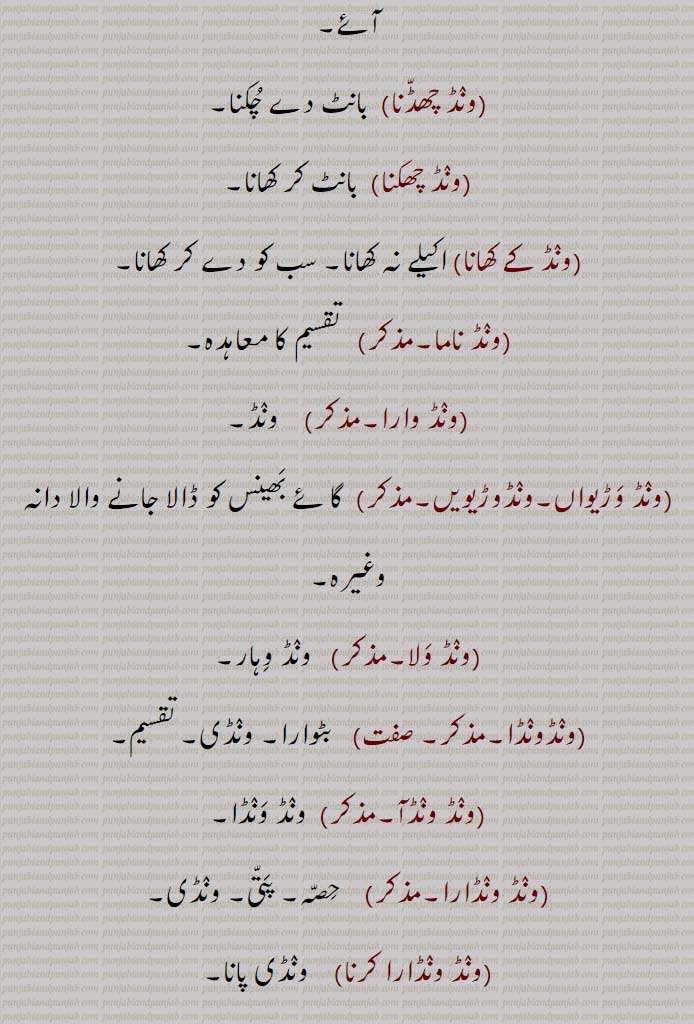 آئے۔
(ونٛڈ چھڈّنا) بانٹ دے چُکنا۔
(ونٛڈ چھکنا) بانٹ کر کھانا۔
(ونٛڈ کے کھانا) اکیلے نہ کھانا۔ سب کو دے کر کھانا۔
(ونٛڈ ناما۔مذکر) تقسیم کا معاہدہ۔
(ونٛڈ وارا۔مذکر) ونٛڈ۔
(ونٛڈ وَڑیواں۔ونٛڈوڑیویں۔مذکر) گائے بَھینس کو ڈالا جانے والا دانہ
وغیرہ۔
(ونٛڈ وَلا۔مذکر) ونٛڈ وِہار۔
(ونٛڈونٛڈا۔مذکر۔ صفت) بٹوارا۔ ونٛڈی۔ تقسیم۔
(ونٛڈ ونٛڈآ۔مذکر) ونٛڈ وَنٛڈا۔
(ونٛڈ ونٛڈارا۔مذکر) حِصّہ۔ پَتّی۔ ونٛڈی۔
(ونٛڈ ونٛڈارا کرنا) ونٛڈی پانا۔